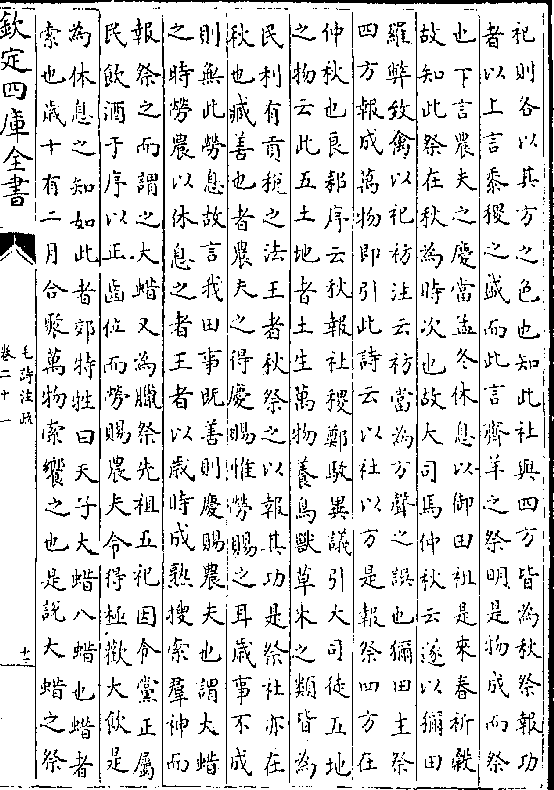 祀則各以其方之色也知此社與四方皆為秋祭報功
者以上言黍稷之盛而此言齊羊之祭明是物成而祭
也下言農夫之慶當孟冬休息以御田祖是來春祈穀
故知此祭在秋為時次也故大司馬仲秋云遂以獮田
羅弊致禽以祀祊注云祊當為方聲之誤也獮田主祭
四方報成萬物即引此詩云以社以方是報祭四方在
仲秋也良耜序云秋報社稷鄭駁異議引大司徒五地
之物云此五土地者土生萬物養鳥獸草木之類皆為
民利有貢稅之法王者秋祭之以報其功是祭社亦在
秋也臧善也者農夫之得慶賜惟勞賜之耳歲事不成
則無此勞息故言我田事既善則慶賜農夫也謂大蜡
之時勞農以休息之者王者以歲時成熟搜索羣神而
報祭之而謂之大蜡又為臘祭先祖五祀因令黨正屬
民飲酒于序以正齒位而勞賜農夫令得極歡大飲是
為休息之知如此者郊特牲曰天子大蜡八蜡也蜡者
索也歲十有二月合聚萬物索饗之也是說大蜡之祭
欽定四庫全書
毛詩注疏
卷二十一
十二